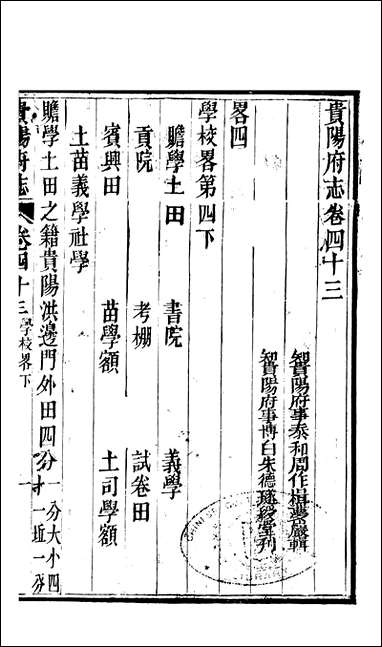 貴陽府志卷四十三
知貴陽府事泰和周作楫纂嚴輯
知貴陽府事博白朱德璲綬堂刊
畧四
學校畧第四下
贍學土田 書院 義學
貢院 考棚 試卷田
賓興田 苗學額 土司學額
土苗義學社學
贍學土田之籍貴陽洪邊門外田四分一分大小四
一近一分
貴陽府志 卷四十三 學校畧下 一